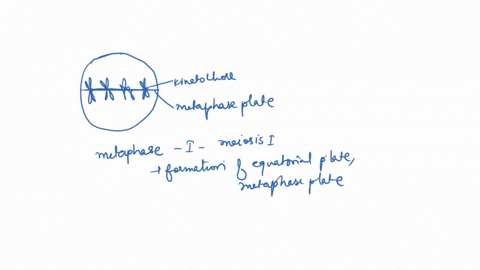 kinetochore
metaphase plate
metaphase - I - meiosis I
→ formation of equatorial plate,
metaphase plate